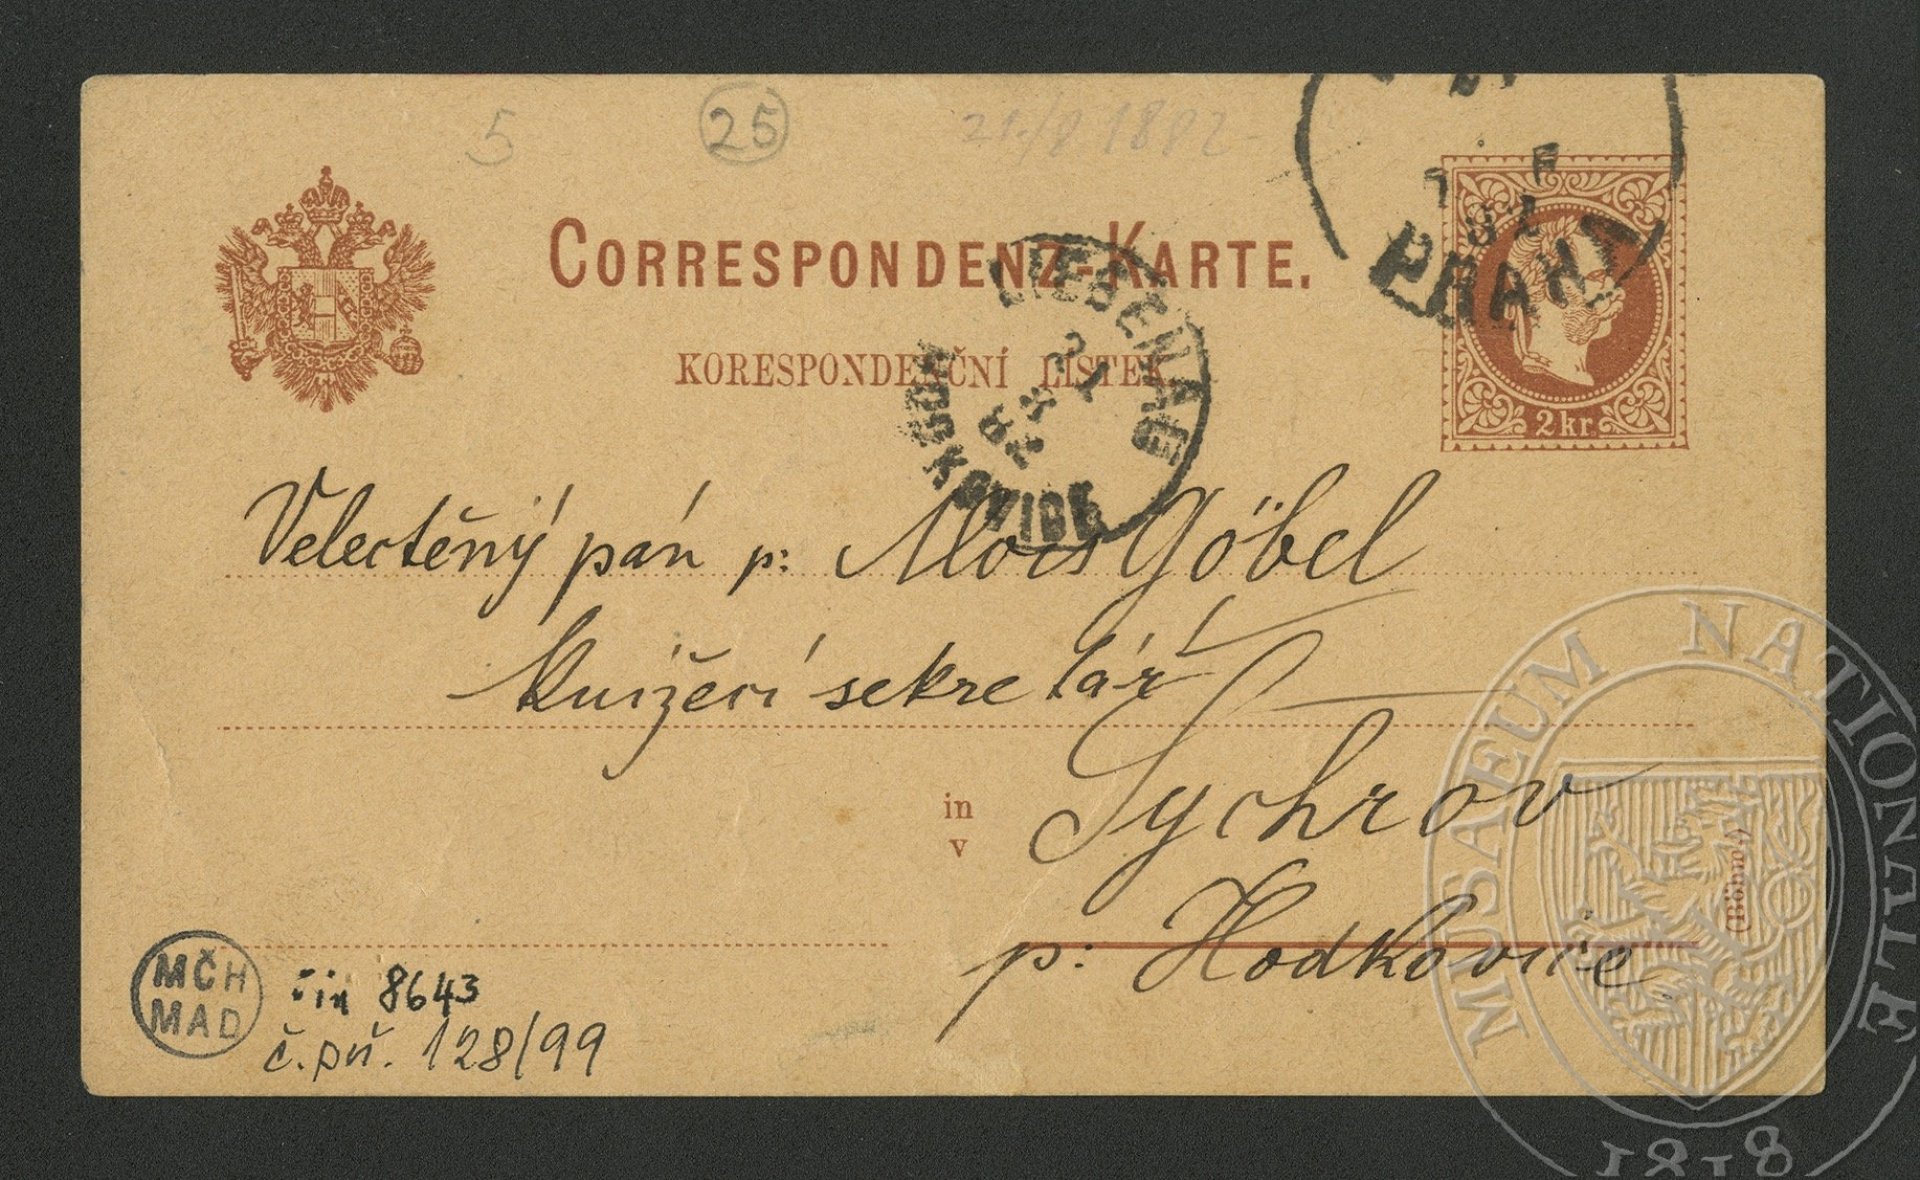 5 25 21./8 1882
CORRESPONDENZ-KARTE.
KORESPONDENČNÍ LÍSTEK.
LIEBENAU
HODKOVICE
2 kr.
Velectěný pán p: Alois Göbel
knížecí sekretář
in
v
Sychrov
p: Hodkovice
(Böhm.)
MČH
MAD
čin 8643
č.př. 128/99
MUSAEUM NATIONALE
1818